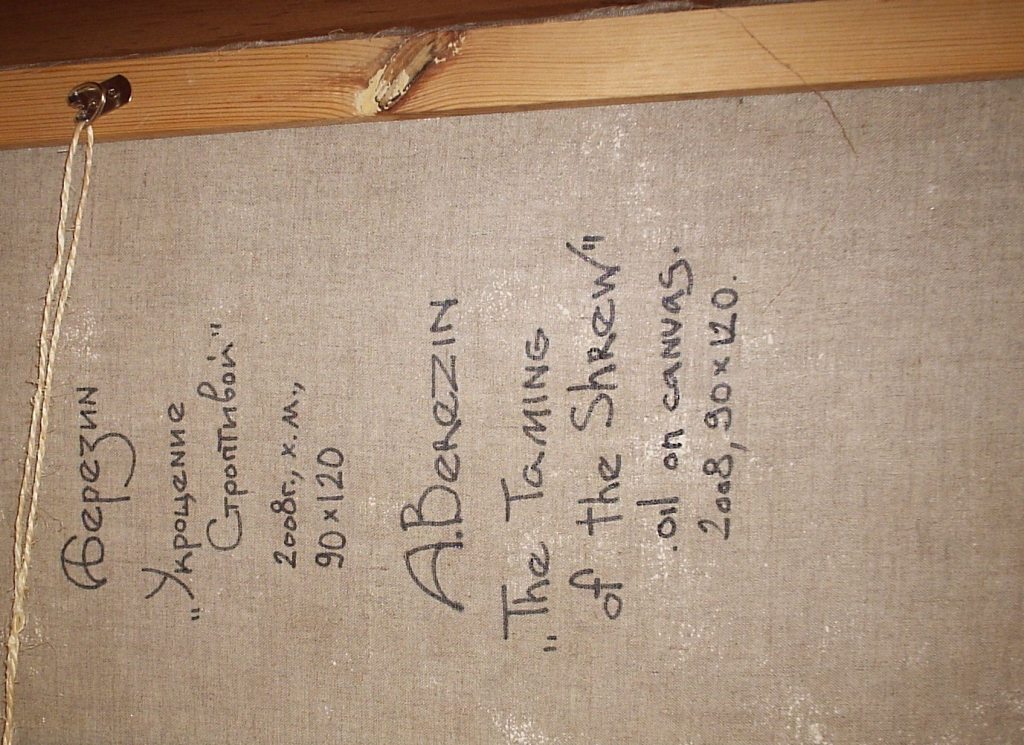 А Березин
„Укрощение
Строптивой"
2008г., х.м.,
90 x 120
A. BEREZIN
„The TaMING
of the ShREW"
.oil on canvas.
2008, 90 x 120.